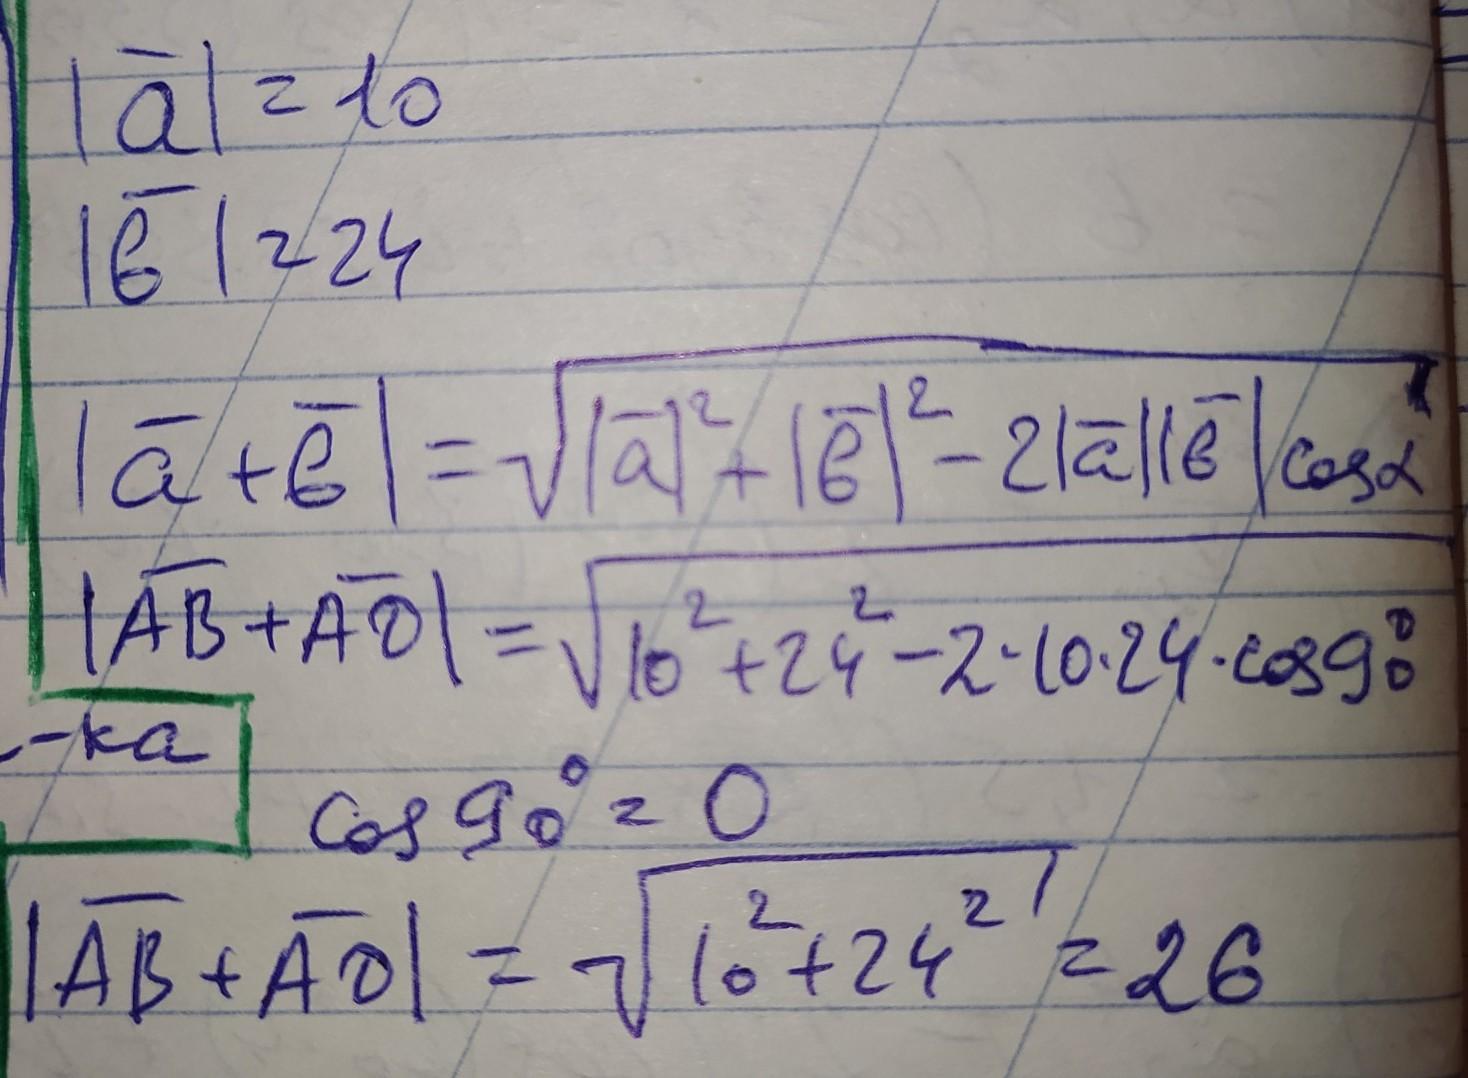 |a̅| = 10
|b̅| = 24
|a̅ + b̅| = √|a̅|² + |b̅|² - 2|a̅||b̅| cosα
|A̅B̅ + A̅D̅| = √10² + 24² - 2·10·24·cos90°
-ка
cos 90° = 0
|A̅B̅ + A̅D̅| = √10² + 24² = 26